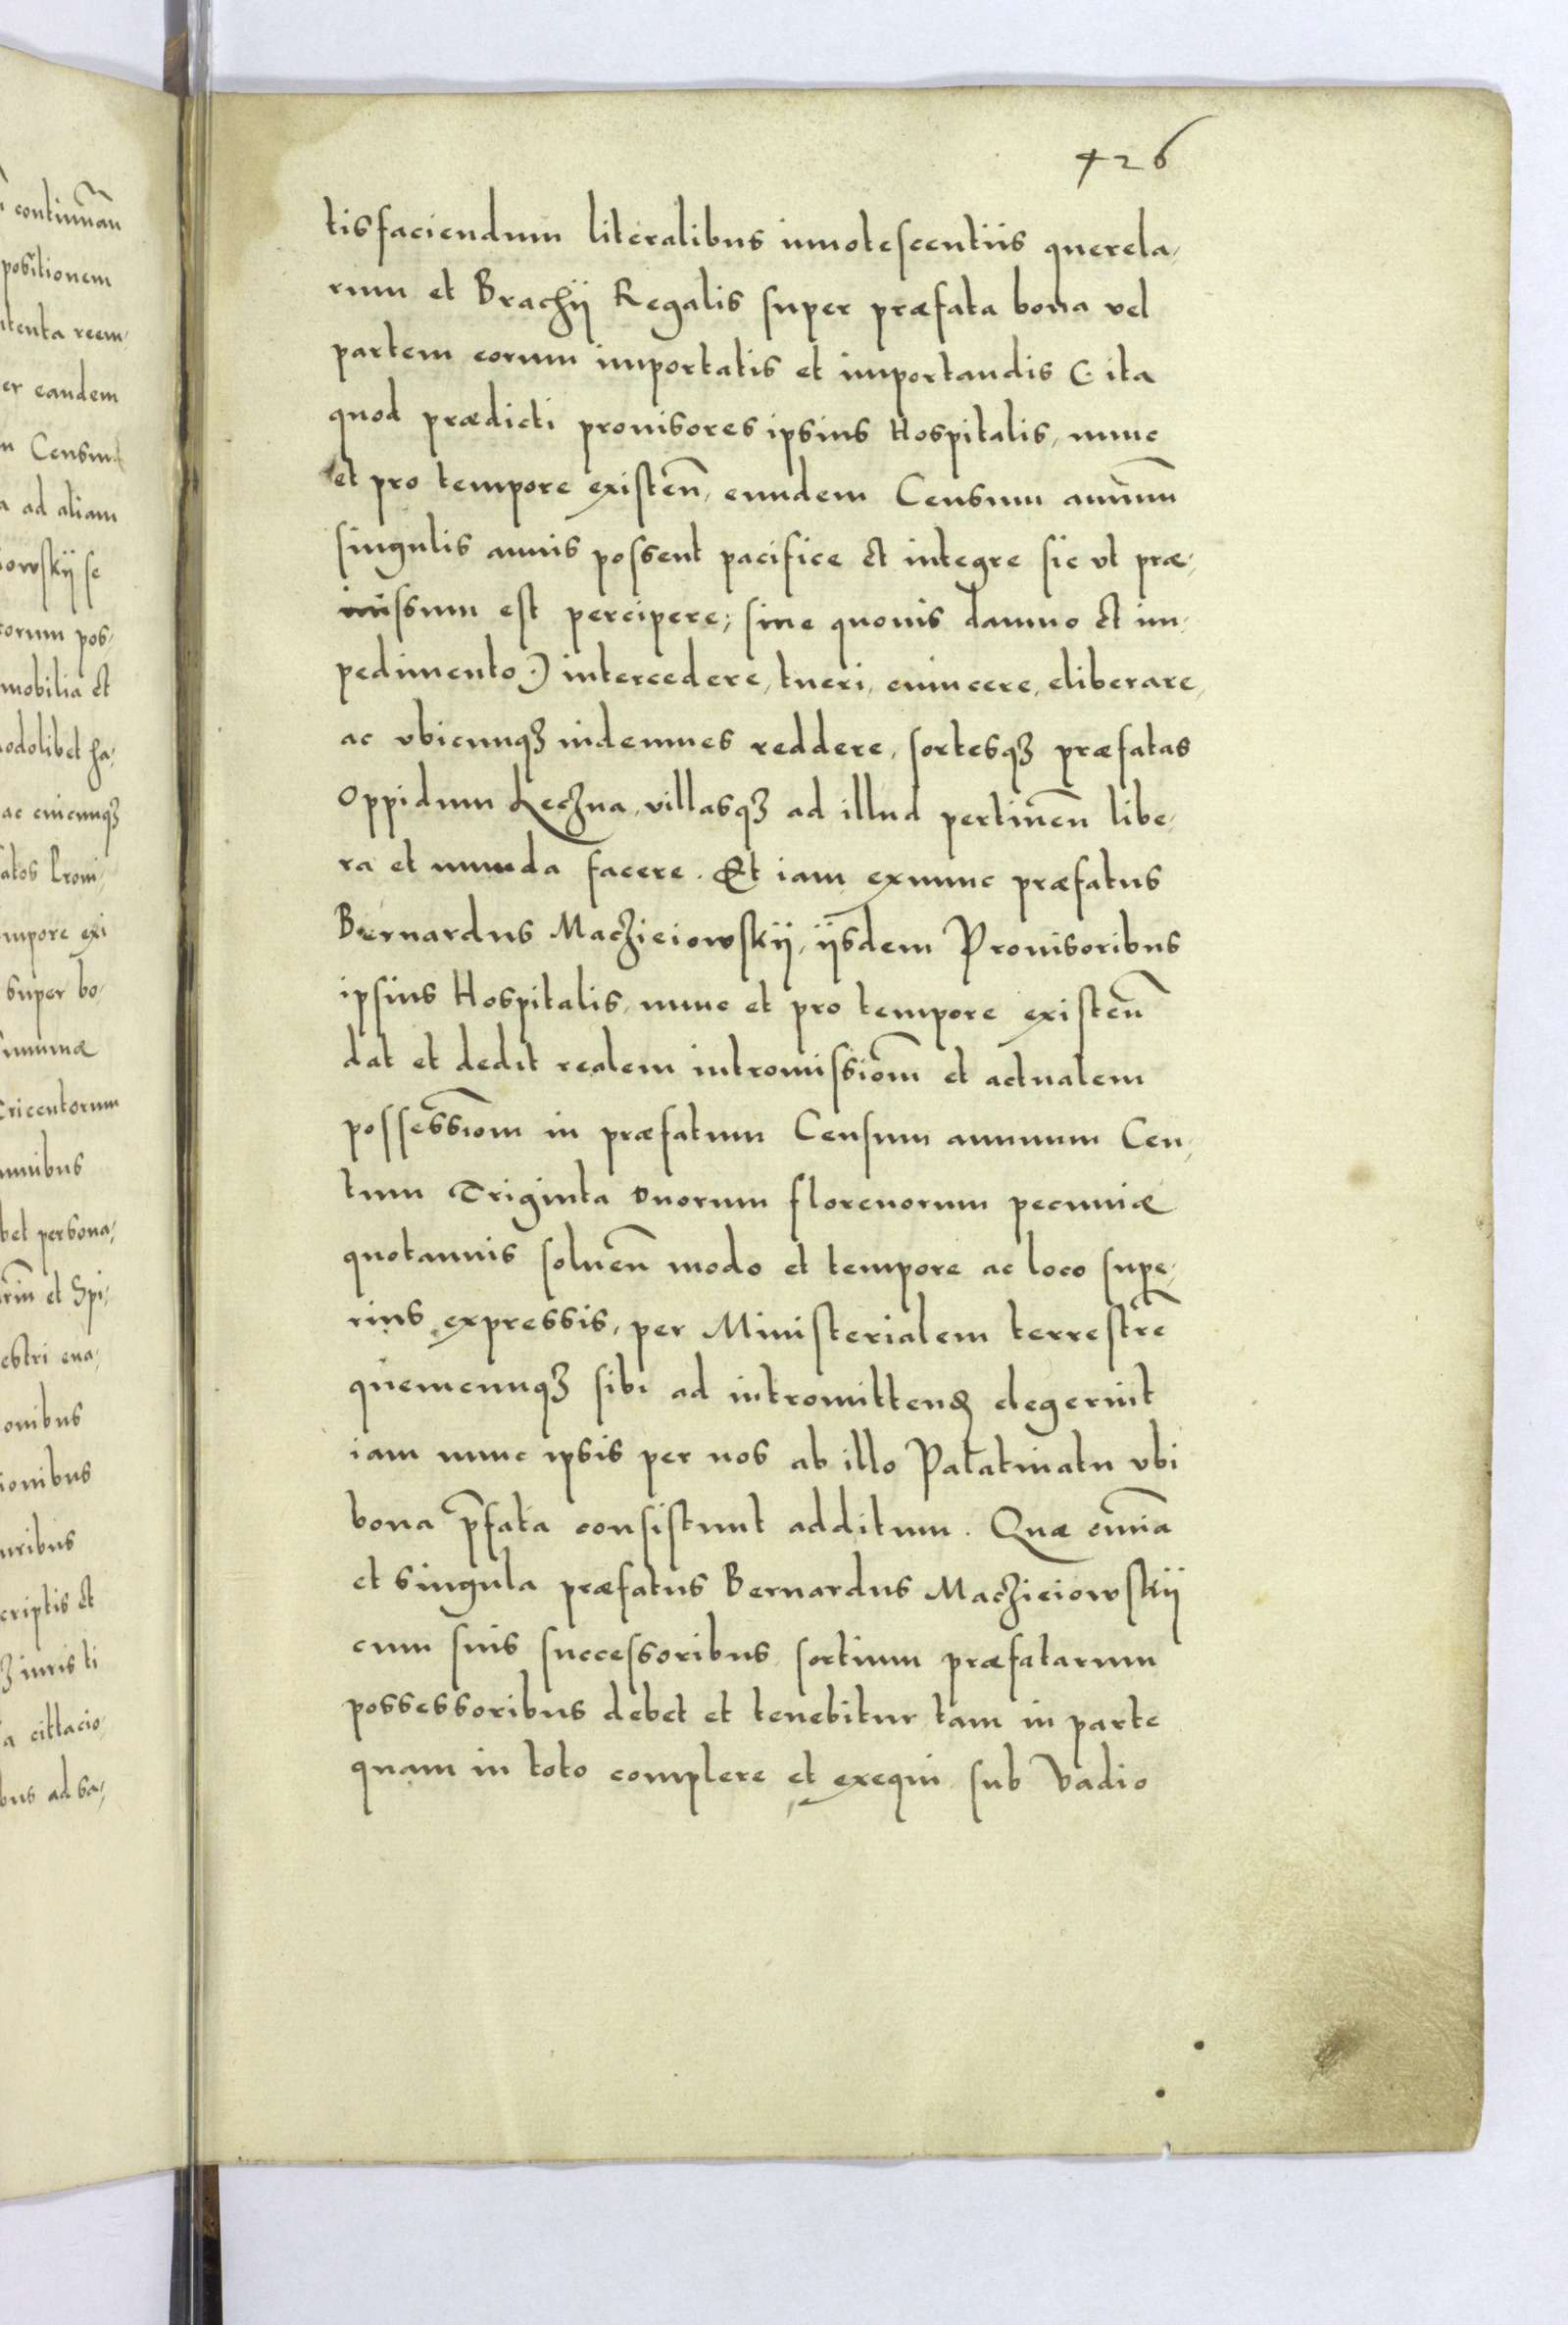 continuāū
positionem
ntenta reem-
er eandem
Censum
a ad aliam
iowskÿ se
orum pos-
mobilia et
odolibet ha-
ac cuicunqꝫ
atos Proui-
mpore exi
super bo-
summæ
Tricentorum
bet persona-
et Spi-
estri eua-
onibus
ionibus
uribus
criptis et
ꝫ iuris ti
a cittacio-
bus ad sa-
426
tisfaciendum literalibus innotescentiis querela-
rum et Brachÿ Regalis super præfata bona vel
partem eorum importatis et importandis (: ita
quod prædicti prouisores ipsius Hospitalis, nunc
et pro tempore existen̄, eundem Censum annuum
singulis annis possent pacifice et integre sic vt præ-
missum est percipere; sine quouis damno et im-
pedimento :) intercedere, tueri, euincere, eliberare,
ac vbicunqꝫ indemnes reddere, sortesqꝫ præfatas
Oppidum Leczna, villasqꝫ ad illud pertinen̄ libe-
ra et munda facere. Et iam exnunc præfatus
Bernardus Maczieiowskÿ, ÿsdem Prouisoribus
ipsius Hospitalis, nunc et pro tempore existen̄
dat et dedit realem intromissiōm et actualem
possessiōm in præfatum Censum annuum Cen-
tum Triginta duorum florenorum pecuniæ
quotannis soluen̄ modo et tempore ac loco supe-
rius expressis, per Ministerialem terrestrē
quemcunqꝫ sibi ad intromittenꝺ elegerint
iam nunc ipsis per nos ab illo Palatinatu vbi
bona p̄fata consistunt additum. Quæ om̄ia
et singula præfatus Bernardus Maczieiowskÿ
cum suis successoribus sortium præfatarum
possessoribus debet et tenebitur tam in parte
quam in toto complere et exequi sub vadio